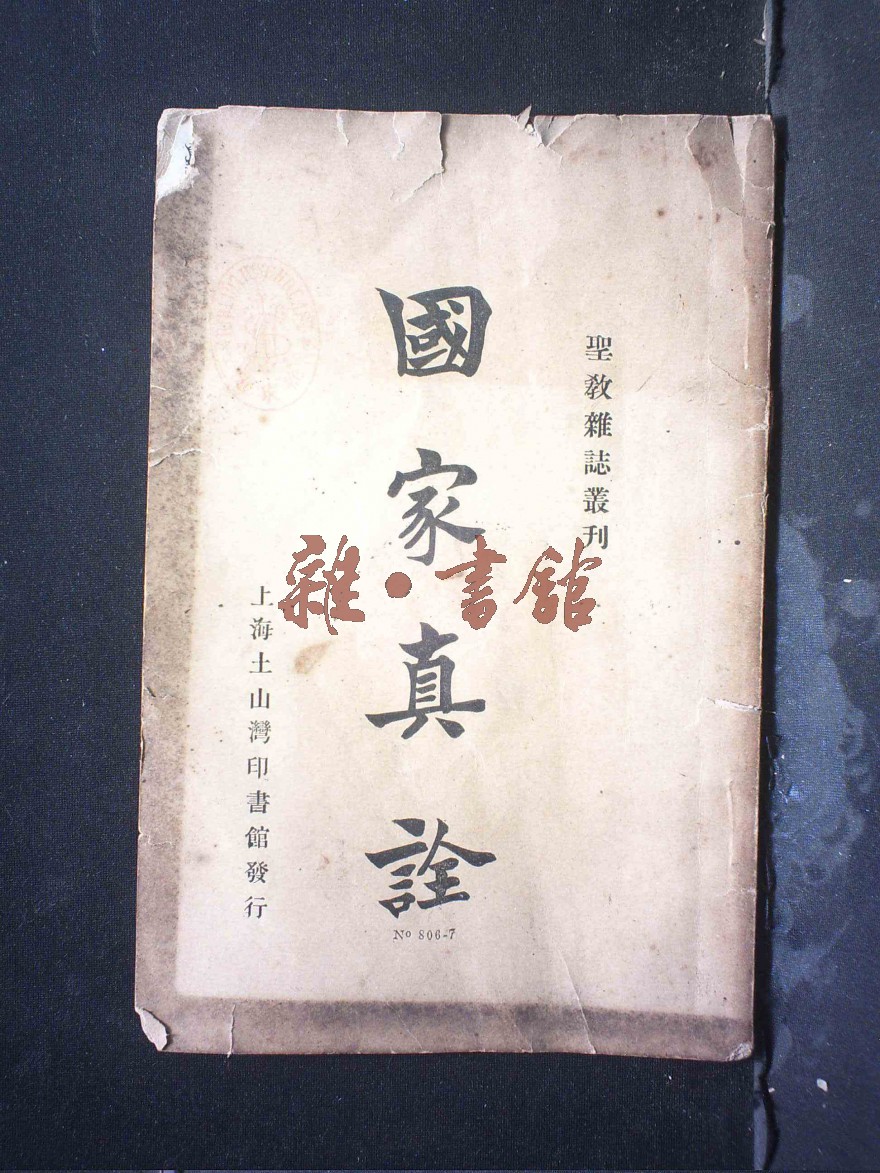 聖教雜誌叢刊
國家真詮
No 806-7
上海土山灣印書館發行
雜·書館